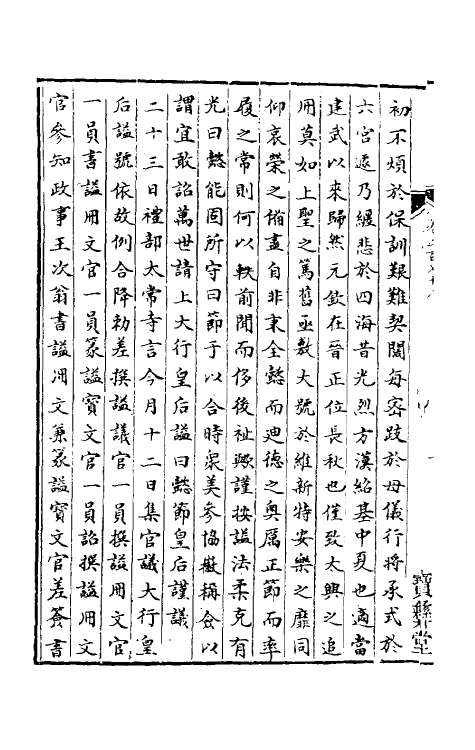 初不煩於保訓艱難契闊每咨跂於母儀行將承式於
六宮遽乃纒悲於四海昔光烈方漢紹基中夏也適當
建武以來歸然元敬在晉正位長秋也僅致太興之追
用莫如上聖之篤舊亟敷大號於維新特安樂之靡同
仰哀榮之備盡自非秉全懿而迪德之奥厲正節而率
履之常則何以軼前聞而侈後祉歟謹按諡法柔克有
光曰懿能固所守曰節于以合時衆美參協徽稱僉以
謂宜敢詔萬世請上大行皇后諡曰懿節皇后謹議
二十三日禮部太常寺言今月十二日集官議大行皇
后諡號依故例合降勅差撰諡議官一員撰諡册文官
一員書諡册文官一員篆諡寶文官一員詔撰諡册文
官參知政事王次翁書諡册文兼篆諡寶文官差簽書